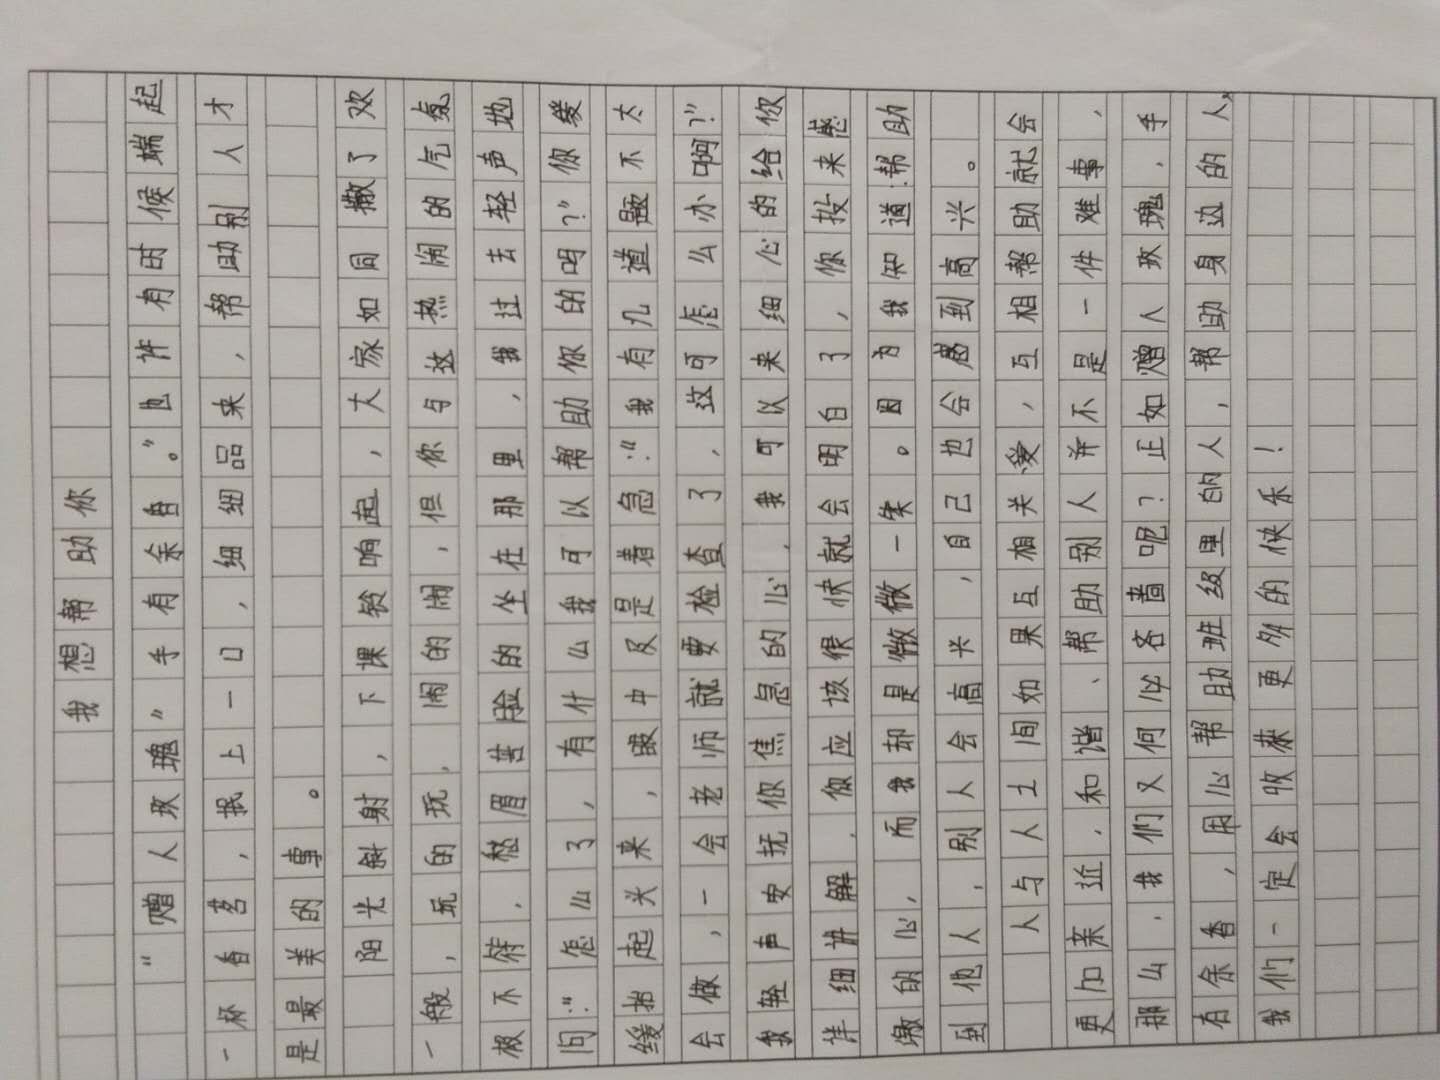 我想帮助你
“赠人玫瑰”手有余香。”也许有时候端起
一杯香茗，抿上一口，细细品来，帮助别人才
是最美的事。
阳光斜射，下课铃响起，大家如同撒了欢
一般，玩的玩，闹的闹，但你与这热闹的气氛
极不符，愁眉苦脸的坐在那里，我过去轻声地
问：“怎么了，有什么我可以帮助你的吗？”你缓
缓抬起头来，眼中及是着急：“我有几道题不太
会做，一会老师就要检查了，这可怎么办啊？”
我轻声安抚你焦急的心，我可以来细心的给你
详细讲解，你应该很快就会明白了，你投来感
激的心，而我却是微微一笑。因为我知道帮助
到他人，别人会高兴，自己也会感到高兴。
人与人士间如果互相关爱，互相帮助就会
更加亲近，和谐、帮助别人并不是一件难事，
那么，我们又何必吝啬呢？正如赠人玫瑰，手
有余香，用心帮助班级里的人，帮助身边的人，
我们一定会收获更多的快乐！